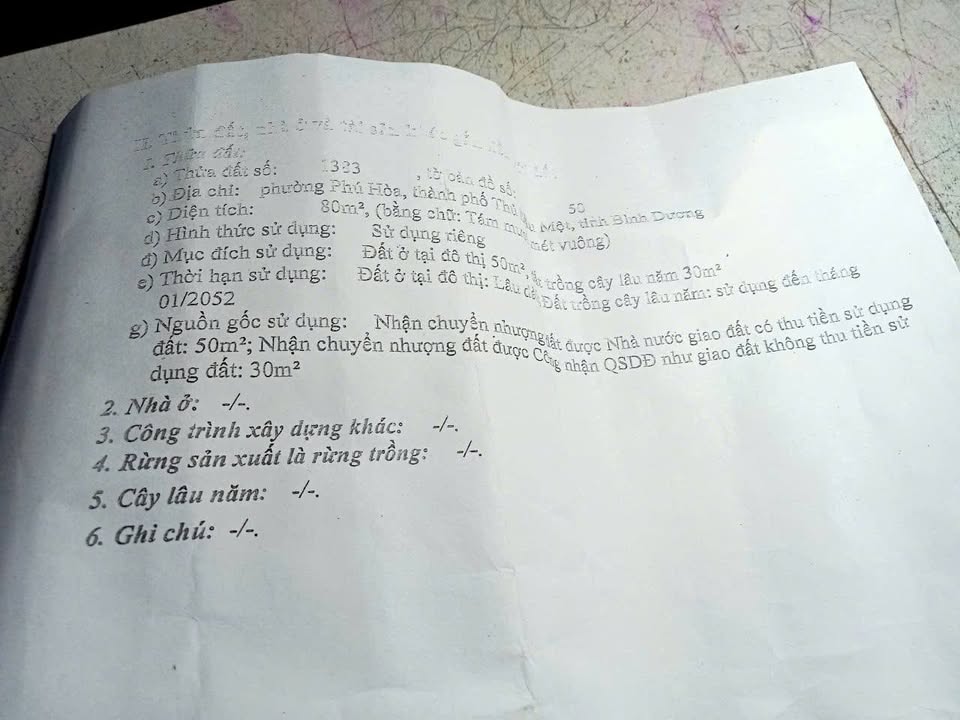 II. Thửa đất, nhà ở và tài sản khác gắn
1. Thửa đất:
a) Thửa đất số: 1383 , tờ bản đồ số: 50
b) Địa chỉ: phường Phú Hòa, thành phố Thủ Một, tỉnh Bình Dương
c) Diện tích: 80m², (bằng chữ: Tám mươi mét vuông)
d) Hình thức sử dụng: Sử dụng riêng
đ) Mục đích sử dụng: Đất ở tại đô thị 50m², trồng cây lâu năm 30m²
e) Thời hạn sử dụng: Đất ở tại đô thị: Lâu Đất trồng cây lâu năm: sử dụng đến tháng
01/2052
g) Nguồn gốc sử dụng: Nhận chuyển nhượng đất được Nhà nước giao đất có thu tiền sử dụng
đất: 50m²; Nhận chuyển nhượng đất được Công nhận QSDĐ như giao đất không thu tiền sử
dụng đất: 30m²
2. Nhà ở: -/-.
3. Công trình xây dựng khác: -/-.
4. Rừng sản xuất là rừng trồng: -/-.
5. Cây lâu năm: -/-.
6. Ghi chú: -/-.